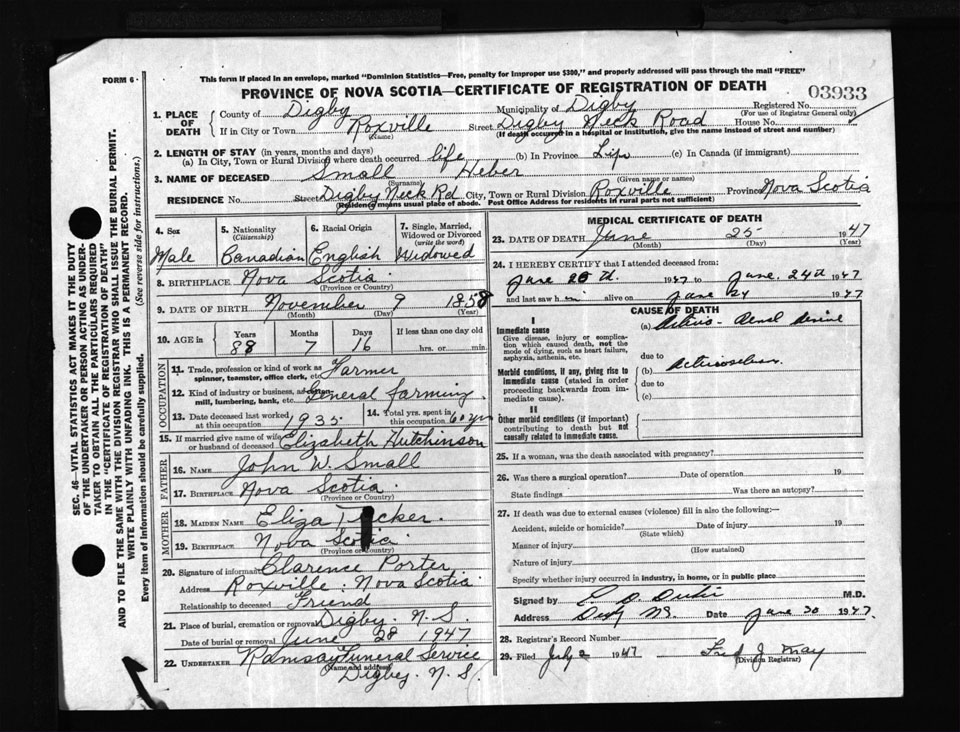 FORM 6
This form if placed in an envelope, marked "Dominion Statistics—Free, penalty for improper use $300," and properly addressed will pass through the mail "FREE"
PROVINCE OF NOVA SCOTIA—CERTIFICATE OF REGISTRATION OF DEATH
03933
1. PLACE OF DEATH
County of Digby Municipality of Digby Registered No.
(For use of Registrar General only)
If in City or Town Roxville Street Digby Neck Road House No.
(Name) (If death occurred in a hospital or institution, give the name instead of street and number)
2. LENGTH OF STAY (in years, months and days)
(a) In City, Town or Rural Division where death occurred life (b) In Province Life (c) In Canada (if immigrant)
3. NAME OF DECEASED Small Heber
(Surname) (Given name or names)
RESIDENCE No. Street Digby Neck Rd City, Town or Rural Division Roxville Province Nova Scotia
(Residence means usual place of abode. Post Office Address for residents in rural parts not sufficient)
4. Sex
Male
5. Nationality
(Citizenship)
Canadian
6. Racial Origin
English
7. Single, Married, Widowed or Divorced
(write the word)
Widowed
8. BIRTHPLACE Nova Scotia
(Province or Country)
9. DATE OF BIRTH November 9 1858
(Month) (Day) (Year)
10. AGE in
Years Months Days If less than one day old
88 7 16 hrs. or min.
OCCUPATION
11. Trade, profession or kind of work as spinner, teamster, office clerk, etc. Farmer
12. Kind of industry or business, as cotton mill, lumbering, bank, etc. General farming
13. Date deceased last worked 1935
14. Total yrs. spent in this occupation 60 yrs
15. If married give name of wife or husband of deceased Elizabeth Hutchinson
FATHER
16. NAME John W. Small
17. BIRTHPLACE Nova Scotia
(Province or Country)
MOTHER
18. MAIDEN NAME Eliza
19. BIRTHPLACE Nova Scotia
(Province or Country)
20. Signature of informant Clarence Porter
Address Roxville. Nova Scotia
Relationship to deceased Friend
21. Place of burial, cremation or removal Digby. N. S.
Date of burial or removal June 28 1947
22. UNDERTAKER Ramsay Funeral Service
(Name and address)
Digby. N. S.
MEDICAL CERTIFICATE OF DEATH
23. DATE OF DEATH June 25 1947
(Month) (Day) (Year)
24. I HEREBY CERTIFY that I attended deceased from:
June 1947 to June 24th 1947
and last saw him alive on June 24 1947
CAUSE OF DEATH
I
Immediate cause
Give disease, injury or complication which caused death, not the mode of dying, such as heart failure, asphyxia, asthenia, etc.
(a)
due to
Morbid conditions, if any, giving rise to immediate cause (stated in order proceeding backwards from immediate cause).
(b)
due to
(c)
II
Other morbid conditions (if important) contributing to death but not causally related to immediate cause.
25. If a woman, was the death associated with pregnancy?
26. Was there a surgical operation? Date of operation 19
State findings Was there an autopsy?
27. If death was due to external causes (violence) fill in also the following:—
Accident, suicide or homicide? Date of injury 19
(State which)
Manner of injury
(How sustained)
Nature of injury
Specify whether injury occurred in industry, in home, or in public place
Signed by M.D.
Address Date June 30 1947
28. Registrar's Record Number
29. Filed July 2 1947 Fred J. May
(Division Registrar)
SEC. 46—VITAL STATISTICS ACT MAKES IT THE DUTY
OF THE UNDERTAKER OR PERSON ACTING AS UNDER-
TAKER TO OBTAIN ALL THE PARTICULARS REQUIRED
IN THE "CERTIFICATE OF REGISTRATION OF DEATH"
AND TO FILE THE SAME WITH THE DIVISION REGISTRAR WHO SHALL ISSUE THE BURIAL PERMIT.
WRITE PLAINLY WITH UNFADING INK. THIS IS A PERMANENT RECORD.
Every item of information should be carefully supplied. (See reverse side for instructions.)